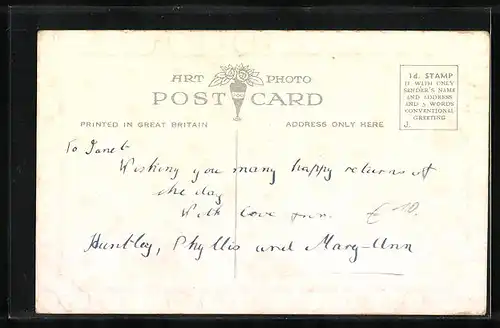 ART PHOTO
POST CARD
1d. STAMP
IF WITH ONLY
SENDER'S NAME
AND ADDRESS
AND 5 WORDS
CONVENTIONAL
GREETING
J.
PRINTED IN GREAT BRITAIN
ADDRESS ONLY HERE
To Janet
Wishing you many happy returns of
the day
With love from
£10.
Huntley, Phyllis and Mary-Ann